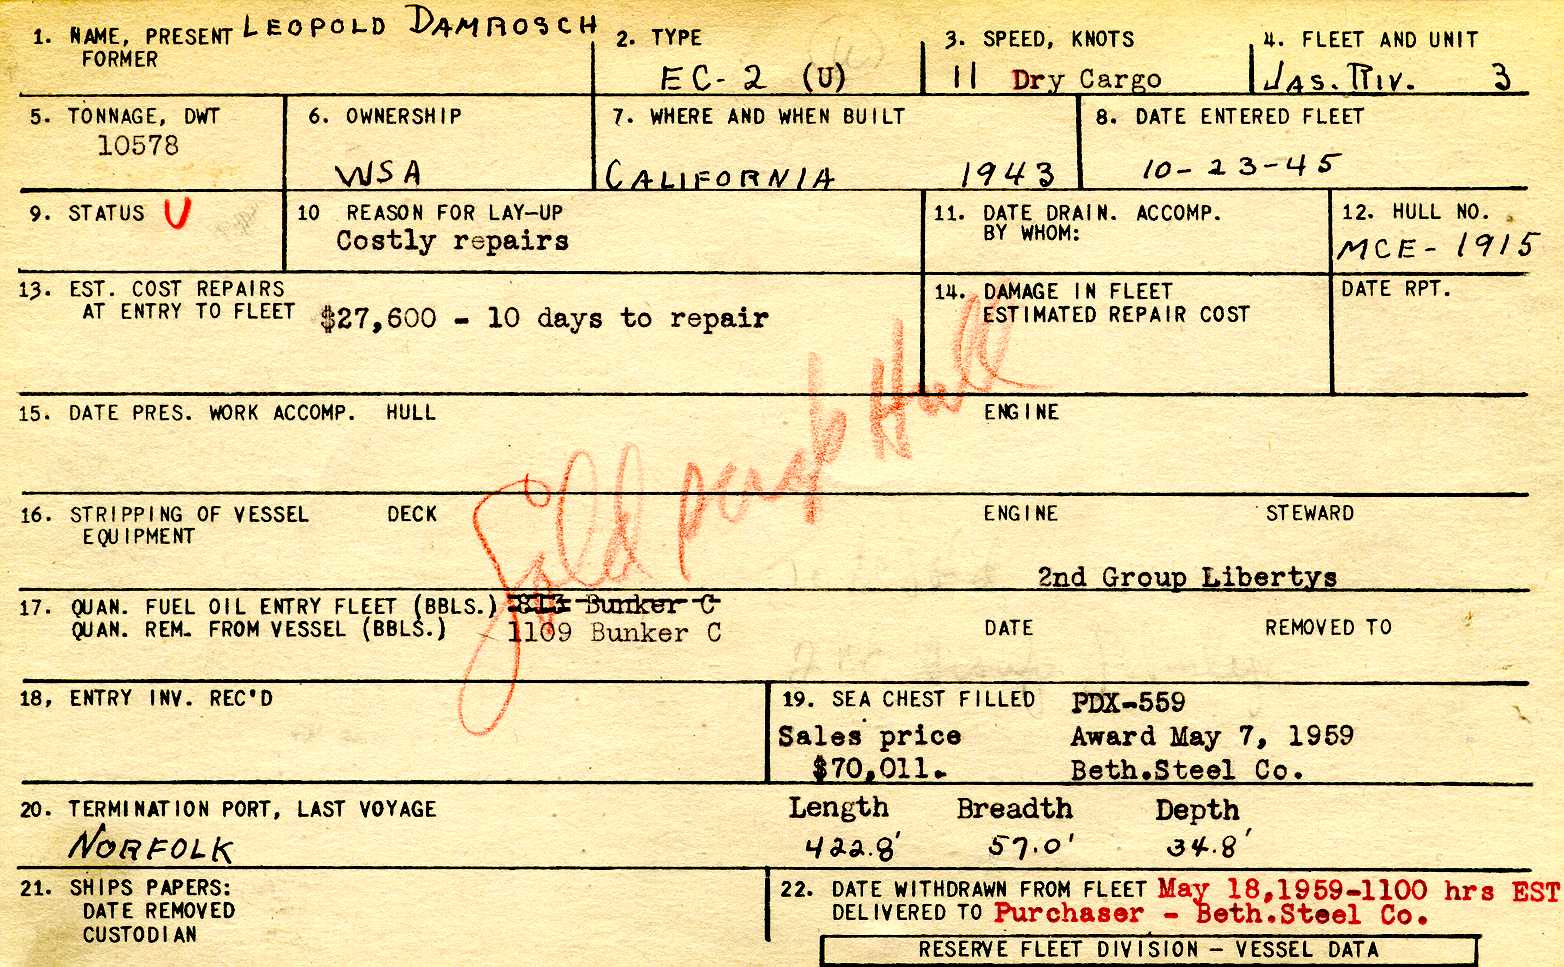 1. NAME, PRESENT LEOPOLD DAMROSCH
FORMER
2. TYPE
EC-2 (U)
3. SPEED, KNOTS
11 Dry Cargo
4. FLEET AND UNIT
JAS. RIV. 3
5. TONNAGE, DWT
10578
6. OWNERSHIP
WSA
7. WHERE AND WHEN BUILT
CALIFORNIA 1943
8. DATE ENTERED FLEET
10-23-45
9. STATUS U
10 REASON FOR LAY-UP
Costly repairs
11. DATE DRAIN. ACCOMP.
BY WHOM:
12. HULL NO.
MCE-1915
13. EST. COST REPAIRS
AT ENTRY TO FLEET $27,600 - 10 days to repair
14. DAMAGE IN FLEET
ESTIMATED REPAIR COST
DATE RPT.
15. DATE PRES. WORK ACCOMP. HULL ENGINE
Sold Hull
16. STRIPPING OF VESSEL DECK ENGINE STEWARD
EQUIPMENT
2nd Group Libertys
17. QUAN. FUEL OIL ENTRY FLEET (BBLS.) 813 Bunker C
QUAN. REM. FROM VESSEL (BBLS.) 1109 Bunker C DATE REMOVED TO
18, ENTRY INV. REC'D
19. SEA CHEST FILLED PDX-559
Sales price Award May 7, 1959
$70,011. Beth.Steel Co.
20. TERMINATION PORT, LAST VOYAGE
NORFOLK
Length Breadth Depth
422.8' 57.0' 34.8'
21. SHIPS PAPERS:
DATE REMOVED
CUSTODIAN
22. DATE WITHDRAWN FROM FLEET May 18,1959-1100 hrs EST
DELIVERED TO Purchaser - Beth.Steel Co.
RESERVE FLEET DIVISION - VESSEL DATA